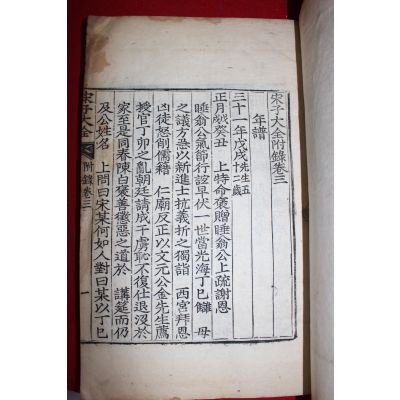 宋子大全附錄卷三
年譜
三十一年戊戌先生五十二歲
正月癸丑 上特命褒贈睡翁公上疏謝恩
睡翁公氣節行誼早伏一世當光海丁巳讎 母
之議方急以新進士抗義折之獨詣 西宮拜恩
凶徒怒削儒籍 仁廟反正以文元公金先生薦
授官丁卯之亂朝廷請成于虜恥不復仕退沒於
家至是同春陳白褒善懲惡之道於 講筵而仍
及公姓名 上問曰宋某何如人對曰某以丁巳
宋子大全 之附錄卷三 一